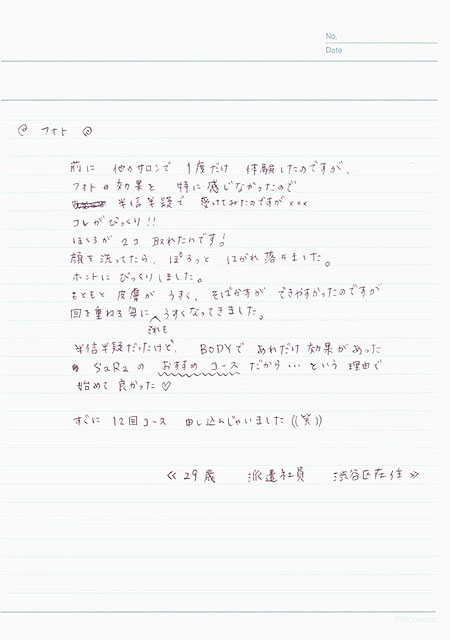 No.
Date
◎ フォト ◎
前に 他のサロンで 1度だけ 体験したのですが、
フォトの効果を 特に感じなかったので
半信半疑で 受けてみたのですが×××
コレがびっくり!!
ほくろが 2コ 取れたんです!
顔を洗ってたら、ぽろっと はがれ落ちました。
ホントに びっくりしました。
もともと 皮膚が うすく、そばかすが できやすかったのですが
回を重ねる毎に それも うすくなってきました。
半信半疑だったけど、 BODYで あれだけ 効果があった
SaRaの おすすめコース だから… という 理由で
始めて 良かった♡
すぐに 12回コース 申し込んじゃいました((笑))
≪29歳 派遣社員 渋谷区在住≫